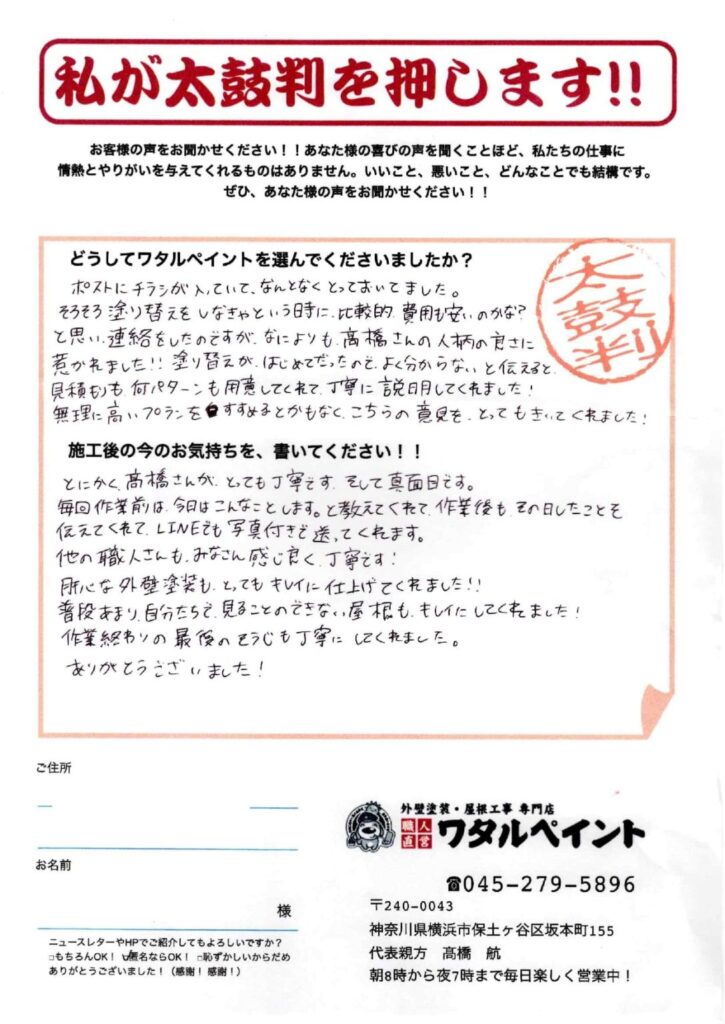 私が太鼓判を押します!!
お客様の声をお聞かせください！！あなた様の喜びの声を聞くことほど、私たちの仕事に
情熱とやりがいを与えてくれるものはありません。いいこと、悪いこと、どんなことでも結構です。
ぜひ、あなた様の声をお聞かせください！！
どうしてワタルペイントを選んでくださいましたか？
太鼓判
ポストにチラシが入っていて、なんとなくとっておいてました。
そろそろ塗り替えをしなきゃという時に、比較的、費用も安いのかな？
と思い、連絡をしたのですが、なによりも、髙橋さんの人柄の良さに
惹かれました!! 塗り替えが、はじめてだったので、よく分からないと伝えると、
見積もりも、何パターンも用意してくれて、丁寧に説明してくれました!
無理に高いプランをすすめるとかもなく、こちらの意見を、とってもきいてくれました!
施工後の今のお気持ちを、書いてください！！
とにかく、髙橋さんが、とっても丁寧です。そして真面目です。
毎回作業前は、今日はこんなことします。と教えてくれて、作業後も、その日したことを
伝えてくれて、LINEでも写真付きで送ってくれます。
他の職人さんも、みなさん感じ良く、丁寧です!
肝心な外壁塗装も、とってもキレイに仕上げてくれました!!
普段あまり、自分たちで、見ることのできない屋根も、キレイにしてくれました!
作業終わりの最後のそうじも丁寧にしてくれました。
ありがとうございました!
ご住所
お名前
様
ニュースレターやHPでご紹介してもよろしいですか？
□もちろんOK！ ☑匿名ならOK！ □恥ずかしいからだめ
ありがとうございました！（感謝！感謝！）
外壁塗装・屋根工事 専門店
職人直営 ワタルペイント
☎045-279-5896
〒240-0043
神奈川県横浜市保土ヶ谷区坂本町155
代表親方 髙橋 航
朝8時から夜7時まで毎日楽しく営業中！